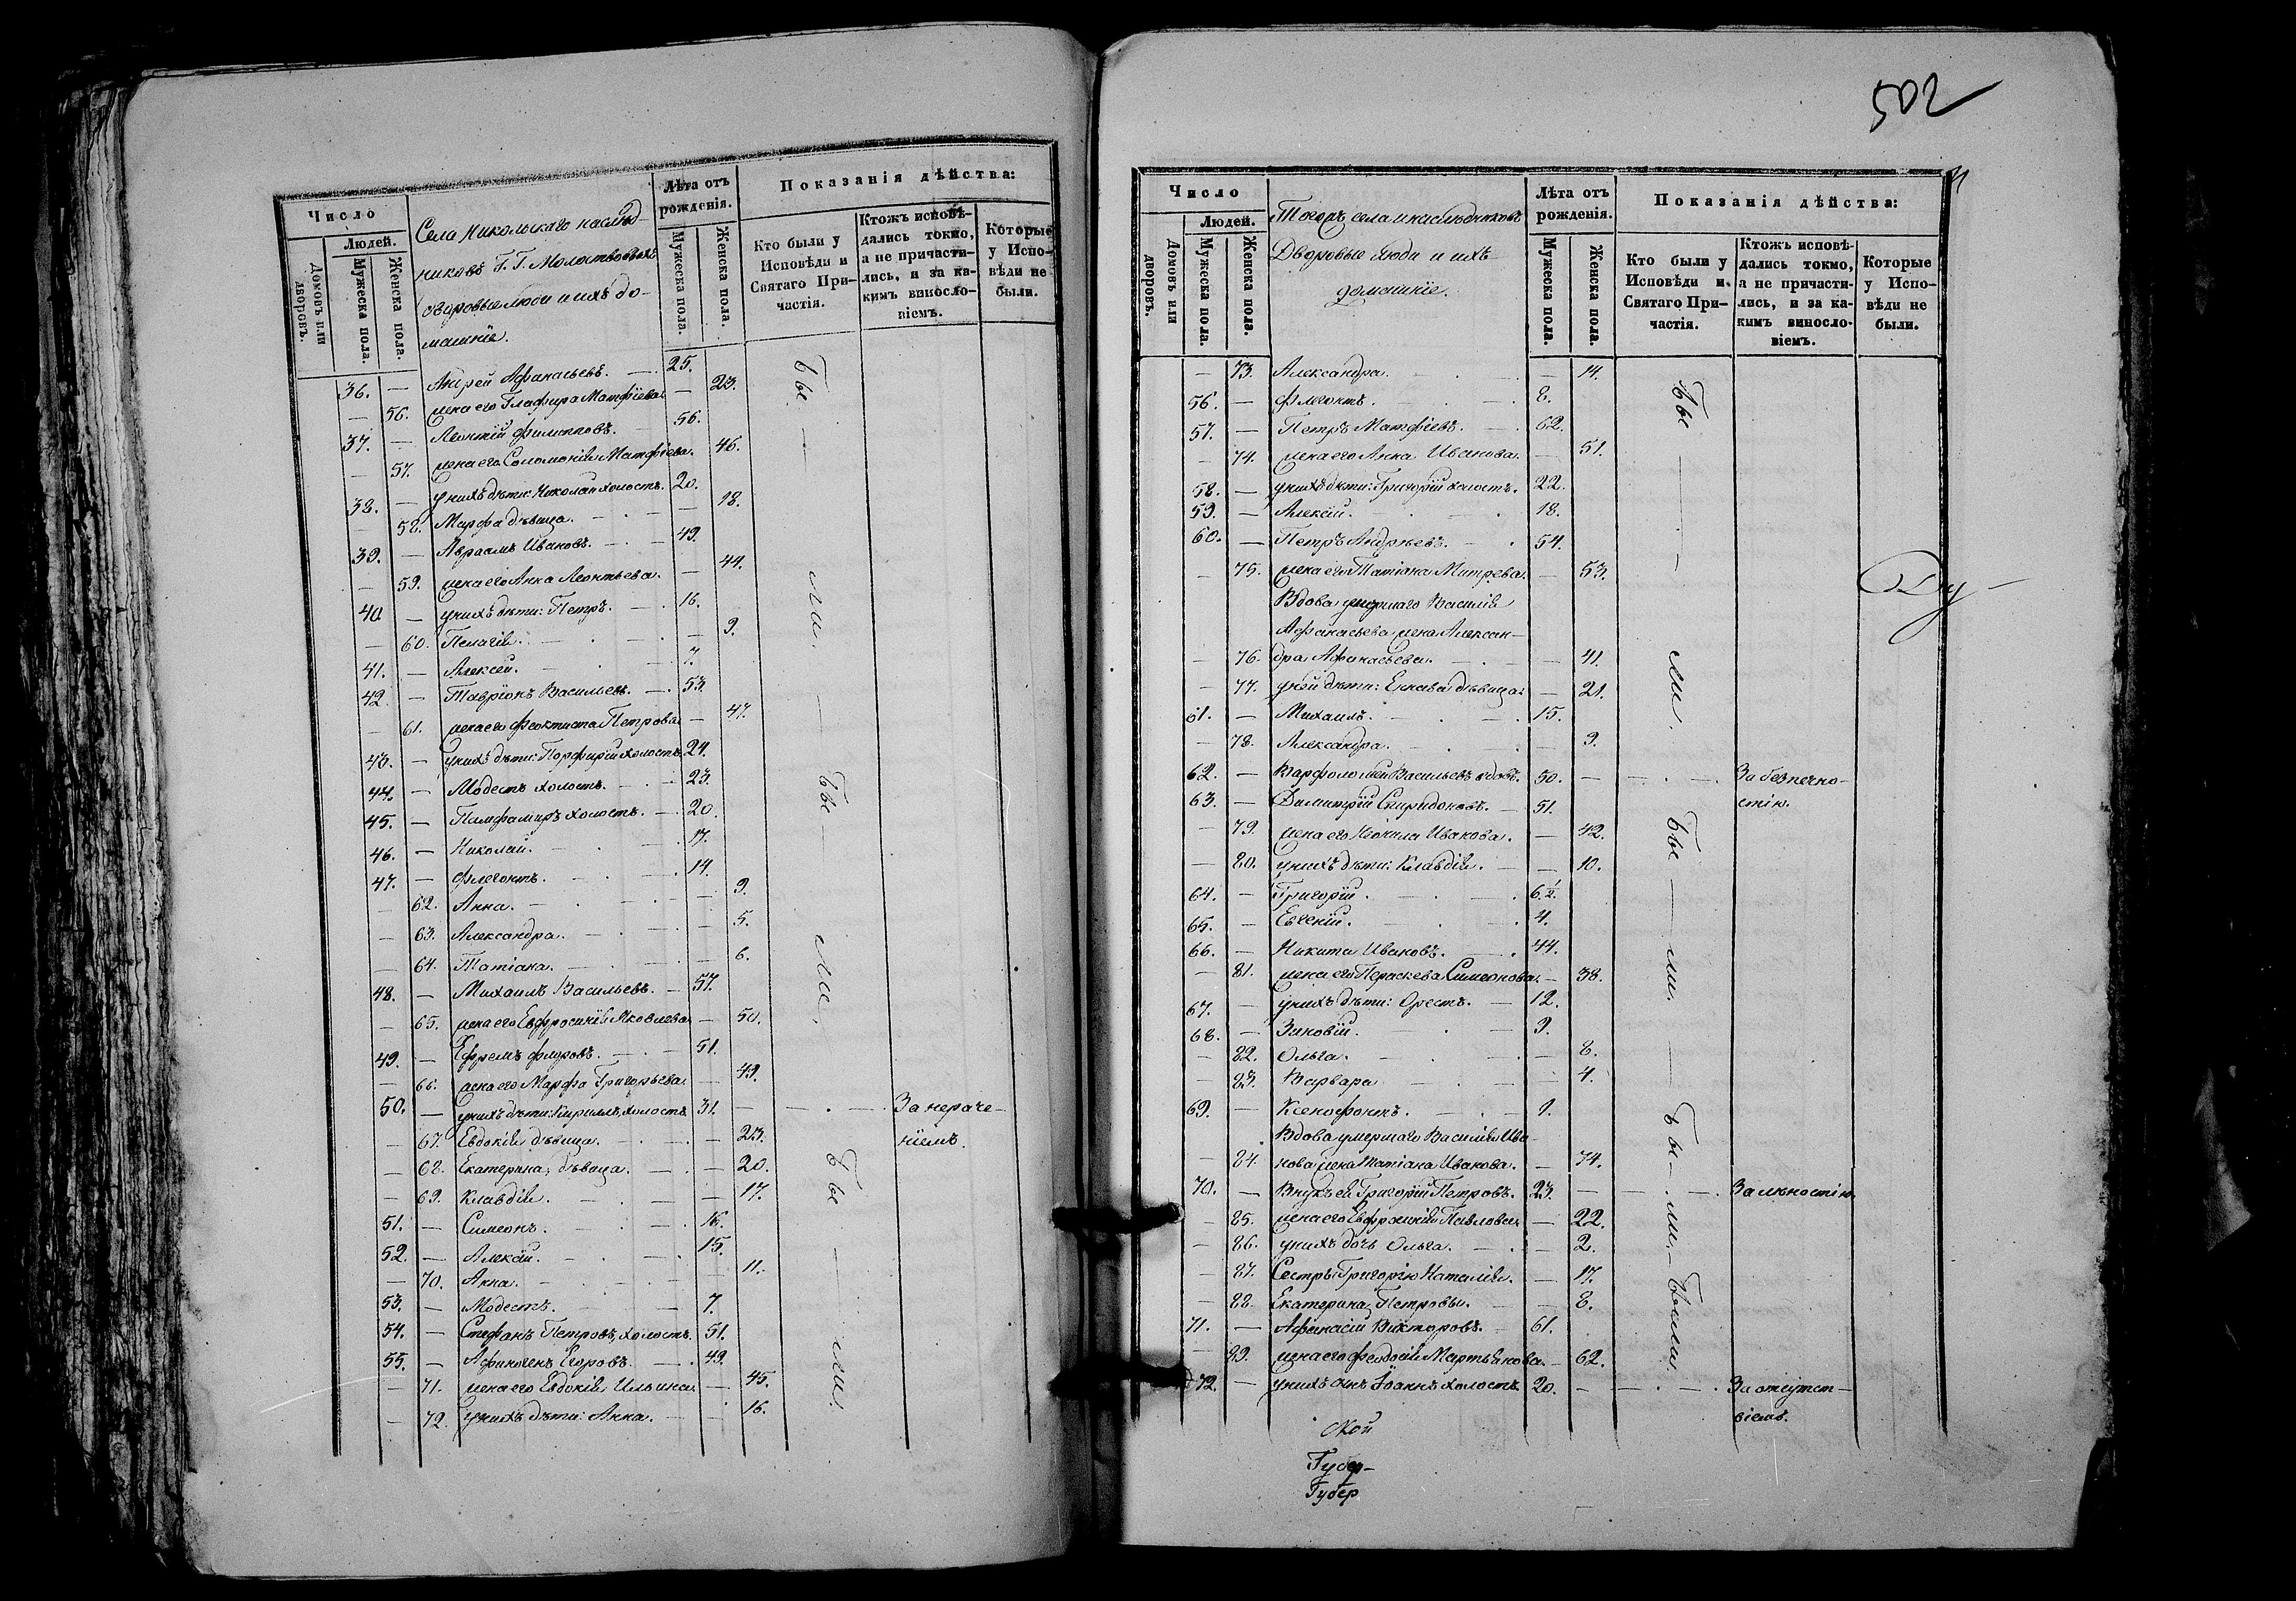 Число
Людей.
Домовъ или дворовъ.
Мужеска пола.
Женска пола.
Села Никольскаго наслѣд-
никовъ Г. Г. Молоствовыхъ
дворовые люди и ихъ до-
машніе.
Лѣта отъ рожденія.
Мужеска пола.
Женска пола.
Показанія дѣйства:
Кто были у Исповѣди и Святаго При-частія.
Ктожъ исповѣ-дались токмо, а не причасти-лись, и за ка-кимъ винослo-віемъ.
Которые у Испо-вѣди не были.
36. — Андрей Афанасьевъ. — 25.
— 56. жена его Глафира Матфіева — 23.
37. — Леонтій Филипповъ. 56.
— 57. жена его Соломонія Матфіева. 46.
38. — у нихъ дѣти: Николай холостъ. 20.
— 58. Марфа дѣвица. — — 18.
39. — Авраамъ Ивановъ. — 49.
— 59. жена его Анна Леонтьева. — 44.
40. — у нихъ дѣти: Петръ. — 16.
— 60. Пелагія. — — 9.
41. — Алексей. — 7.
42. — Таврiонъ Васильевъ. — 53.
— 61. жена его Феоктиста Петрова — 47.
43. — у нихъ дѣти: Порфирій холостъ. 24.
44. — Модестъ холостъ. — 23.
45. — Памфамиръ холостъ. — 20.
46. — Николай. — 17.
47. — Флегонтъ. — 14.
— 62. Анна. — — 9.
— 63. Александра. — — 5.
— 64. Татіана. — — 6.
48. — Михаилъ Васильевъ. — 57.
— 65. жена его Евфросинія Яковлева — 50.
49. — Ефремъ Флоровъ. — 51.
— 66. жена его Марфа Григорьева — 49.
50. — у нихъ дѣти: Кириллъ, холостъ 31. — — . — За нераче-
— 67. Евдокія дѣвица. — — 23. ніемъ.
— 68. Екатерина, дѣвица. — — 20.
— 69. Клавдія. — — 17.
51. — Симеонъ. — 16.
52. — Алексій. — 15.
— 70. Анна. — — 11.
53. — Модестъ. — 7.
54. — Стефанъ Петровъ, холостъ. 51.
55. — Афиногенъ Егоровъ. — 49.
— 71. жена его Евдокія Ильина — 45.
— 72. у нихъ дѣти: Анна. — — 16.
Бы — ли. — Бы — ли. Бы — ли.
502
Число
Людей.
Домовъ или дворовъ.
Мужеска пола.
Женска пола.
Тогожъ села и наслѣдниковъ
Дворовые люди и ихъ
домашніе.
Лѣта отъ рожденія.
Мужеска пола.
Женска пола.
Показанія дѣйства:
Кто были у Исповѣди и Святаго При-частія.
Ктожъ исповѣ-дались токмо, а не причасти-лись, и за ка-кимъ винослo-віемъ.
Которые у Испо-вѣди не были.
— 73. Александра. — 14.
56. — Флегонтъ. — 8.
57. — Петръ Матфіевъ. — 62.
— 74. жена его Анна Иванова. — 51.
58. — у нихъ дѣти: Григорій холостъ. 22.
59. — Алексій. — 18.
60. — Петръ Андреевъ. — 54.
— 75. жена его Татіана Митрева. — 53.
Вдова умершаго Василія
Афанасьева жена Алексан-
— 76. дра Афанасьева. — — 41.
— 77. у ней дѣти: Еннафа дѣвица. — 21.
61. — Михаилъ. — 15.
— 78. Александра. — 9.
62. — Варфоломей Васильевъ вдовъ. 50. — — . — За безпечно-
63. — Димитрій Спиридоновъ. — 51. стію.
— 79. жена его Неонила Иванова. — 42.
— 80. у нихъ дѣти: Клавдія. — — 10.
64. — Григорій. — 6½.
65. — Евгеній. — 4.
66. — Никита Ивановъ. — 44.
— 81. жена его Параскева Симеонова. — 38.
67. — у нихъ дѣти: Орестъ. — 12.
68. — Зиновій. — 9.
— 82. Ольга. — — 8.
— 83. Варвара — — 4.
69. — Ксенофонтъ. — 1.
Вдова умершаго Василія Ива-
— 84. нова жена Татіана Иванова. — 74.
70. — Внукъ ей Григорій Петровъ. 23. — — — . За лѣностію.
— 85. жена его Евфросинія Павлова — 22.
— 86. у нихъ дочь Ольга. — — 2.
— 87. Сестры Григорію Наталія. — 17.
— 88. Екатерина, Петровы. — 8.
71. — Афанасій Викторовъ. 61.
— 89. жена его Феодосія Мартьянова. — 62.
72. — у нихъ сынъ Іоаннъ холостъ. 20. — — . — За отсутст-
віемъ.
Бы — ли. Бы — ли. — Бы — ли. — Были.
ской
Губер-
Губер